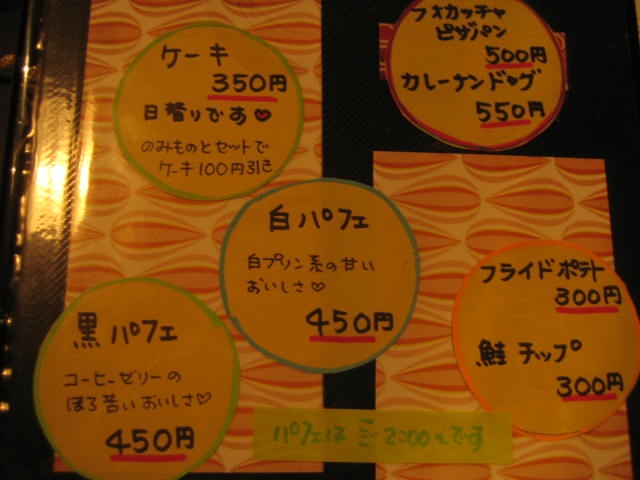 ケーキ
350円
日替りです♥
のみものとセットで
ケーキ100円引き
フオカッチャ
ピザパン
500円
カレーナンドッグ
550円
白パフェ
白プリン系の甘い
おいしさ♡
450円
フライドポテト
300円
鮭チップ
300円
黒パフェ
コーヒーゼリーの
ほろ苦いおいしさ♡
450円
パフェは 2:00〜です